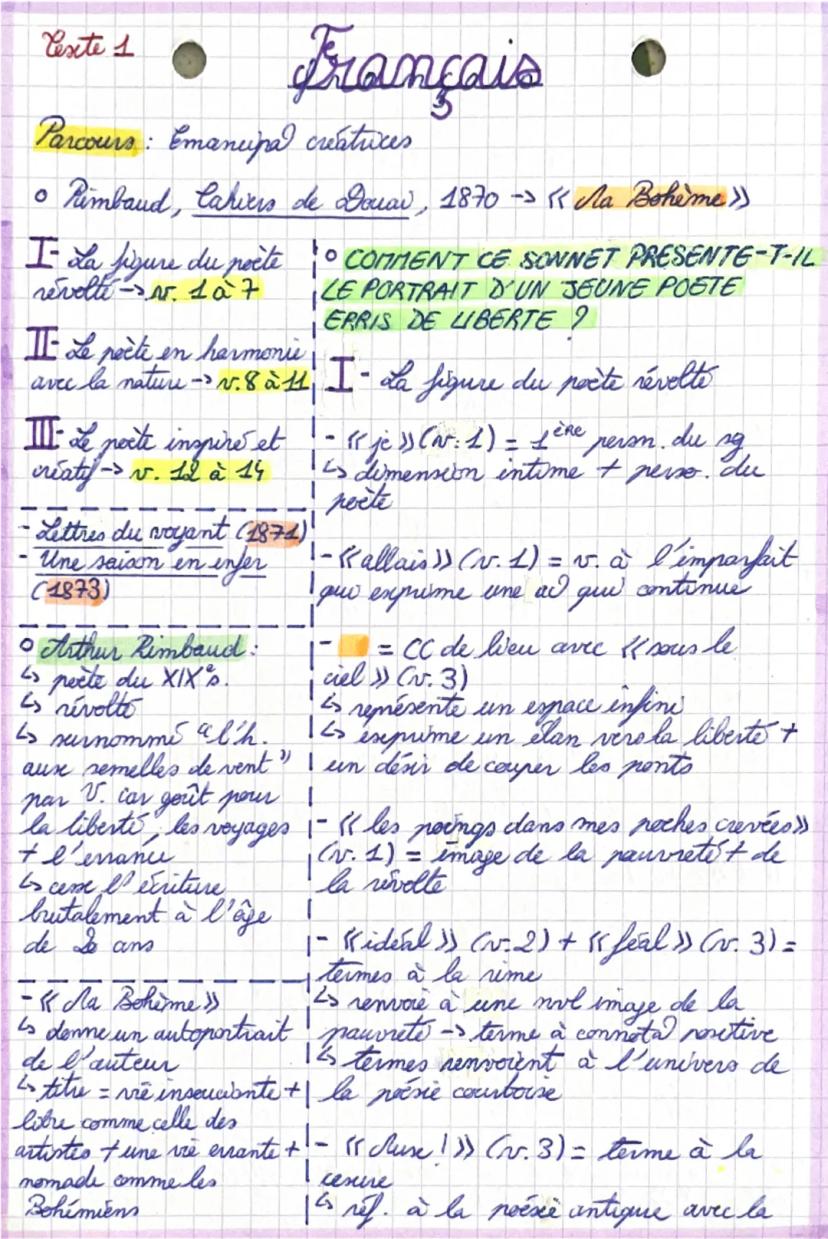 Texte 1
Français
Parcours : Emancipa° créatrices
o Rimbaud, Cahiers de Douai, 1870 -> « Ma Bohème »
I- La figure du poète
révolté -> v. 1 à 7
II- Le poète en harmonie
avec la nature -> v.8 à 11
III- Le poète inspiré et
créatif -> v. 12 à 14
- Lettres du voyant (1871)
- Une saison en enfer
(1873)
o Arthur Rimbaud :
↳ poète du XIXe s.
↳ révolté
↳ surnommé "l'h.
aux semelles de vent"
par V. car goût pour
la liberté, les voyages
+ l'errance
↳ cesse l'écriture
brutalement à l'âge
de 20 ans
- « Ma Bohème »
↳ donne un autoportrait
de l'auteur
↳ titre = vie insouciante +
libre comme celle des
artistes + une vie errante +
nomade comme les
Bohémiens
o COMMENT CE SONNET PRESENTE-T-IL
LE PORTRAIT D'UN JEUNE POETE
ERRIS DE LIBERTE ?
I- La figure du poète révolté
- « je » (v. 1) = 1ÈRE person. du sg
↳ dimension intime + perso. du
poète
- « allais » (v. 1) = v. à l'imparfait
qui exprime une ac° qui continue
- = CC de lieu avec « sous le
ciel » (v. 3)
↳ représente un espace infini
↳ exprime un élan vers la liberté +
un désir de couper les ponts
- « les poings dans mes poches crevées »
(v. 1) = image de la pauvreté + de
la révolte
- « idéal » (v. 2) + « féal » (v. 3) =
termes à la rime
↳ renvoie à une nvl image de la
pauvreté -> terme à connota° positive
↳ termes renvoient à l'univers de
la poésie courtoise
- « Muse ! » (v. 3) = terme à la
césure
↳ réf. à la poésie antique avec la